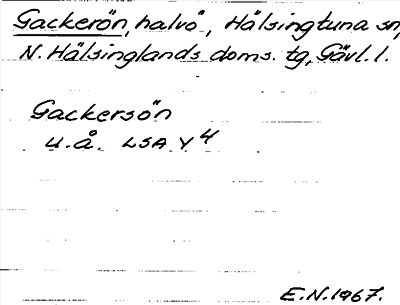 Gackerön, halvö, Hälsingtuna sn,
N. Hälsinglands doms. tg, Gävl. l.
Gackersön
u.å. LSA Y4
E.N. 1967.